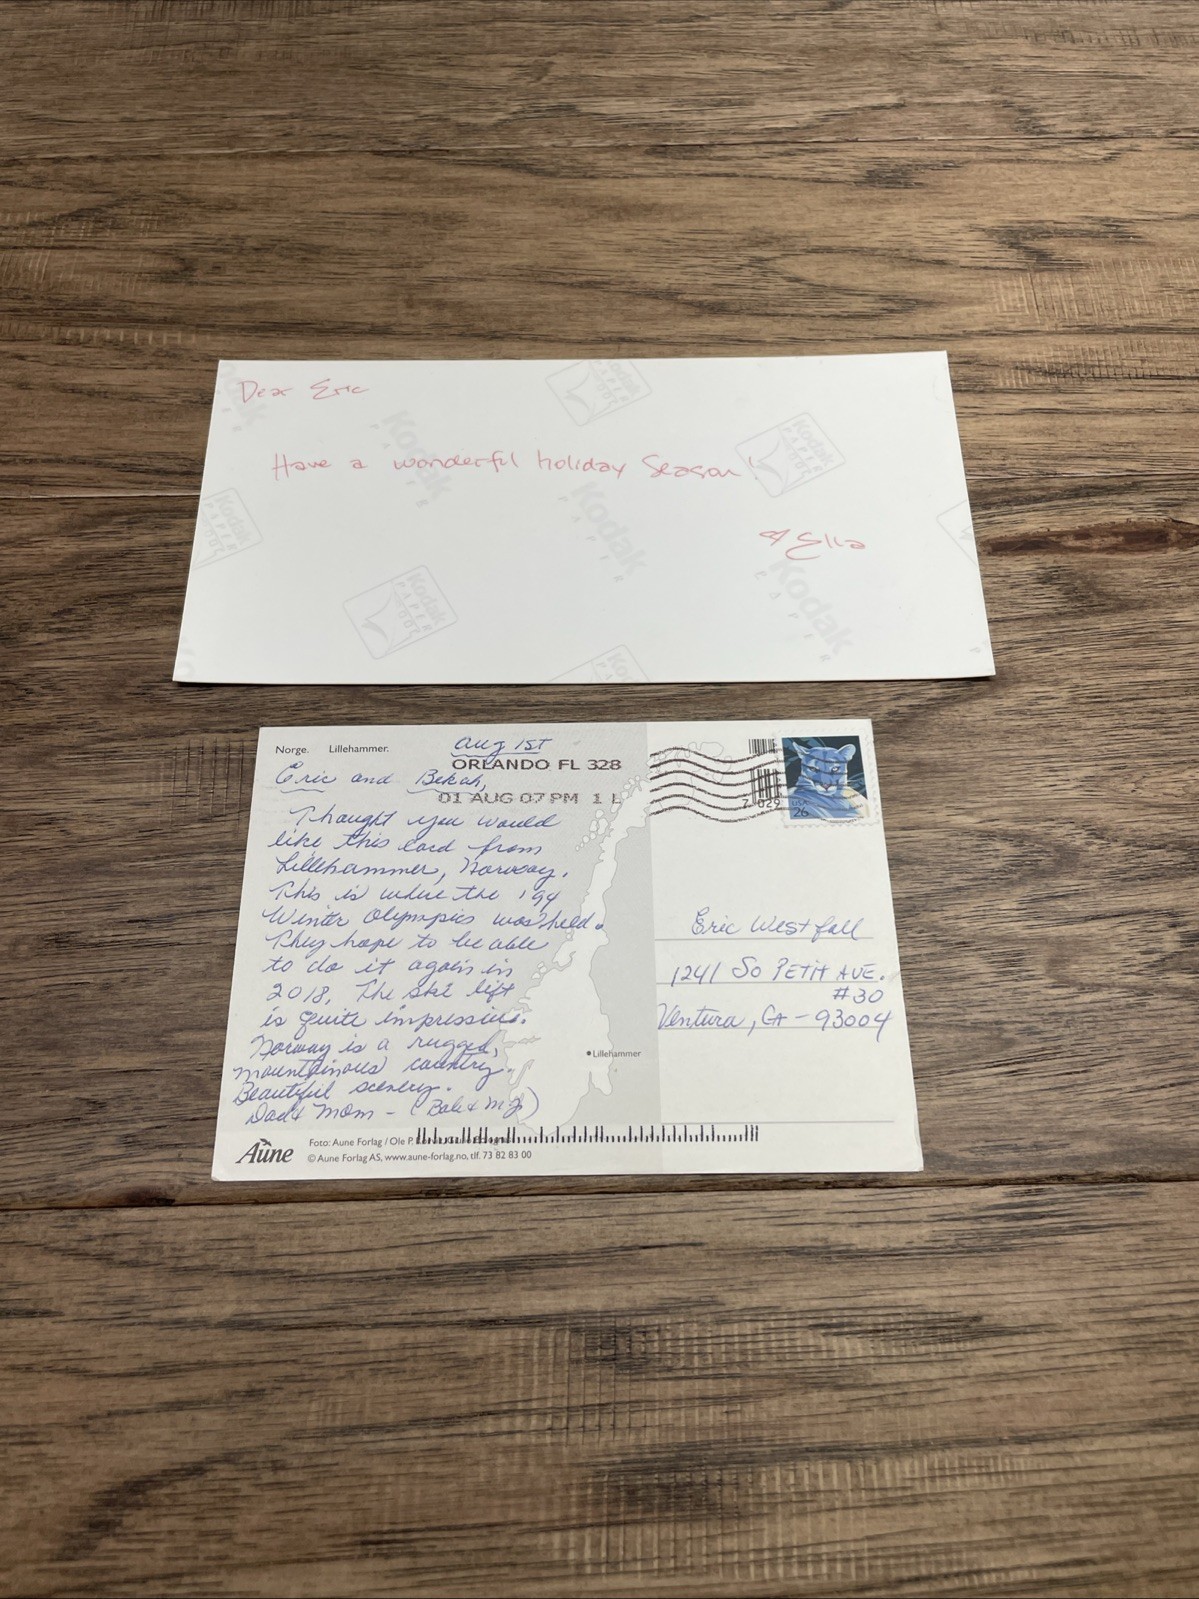 Dear Eric
Have a wonderful holiday Season!
Ella
Kodak
PAPER
Kodak
PAPER
Kodak
PAPER
Kodak
PAPER
Kodak
PAPER
Norge. Lillehammer.
Aug 1st
ORLANDO FL 328
01 AUG 07 PM 1 L
USA
26
Eric and Bekah,
Thought you would
like this card from
Lillehammer, Norway.
This is where the '94
Winter Olympics was held.
They hope to be able
to do it again in
2018. The ski lift
is quite impressive.
Norway is a rugged,
mountainous country.
Beautiful scenery.
Dad & Mom - (
Eric Westfall
1241 So PETIT AVE.
#30
Ventura, CA - 93004
Lillehammer
Aune
Foto: Aune Forlag / Ole P.
© Aune Forlag AS, www.aune-forlag.no, tlf. 73 82 83 00